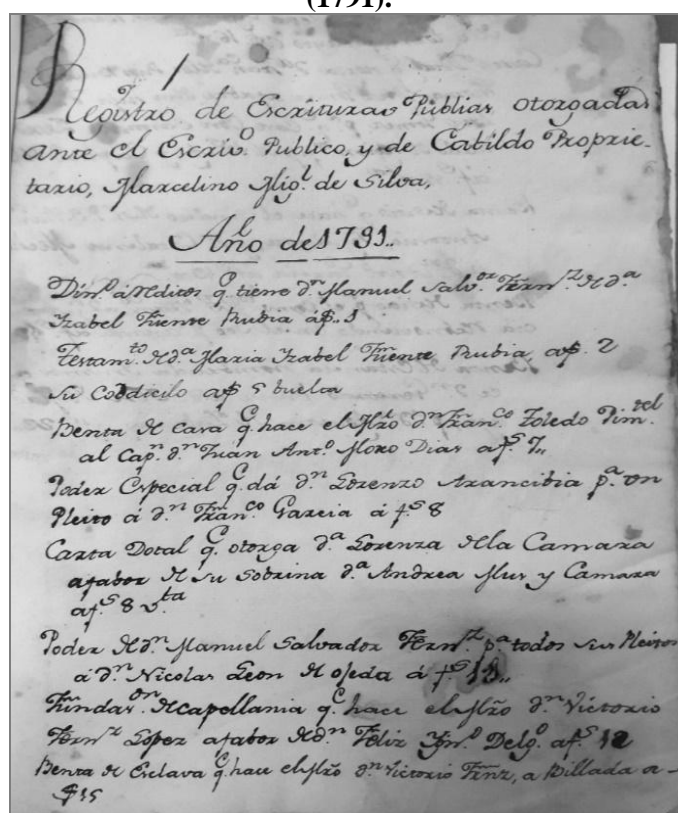 (1791).
Registro de Escrituras Publias otorgadas
ante el Escriv.º Publico, y de Cabildo Proprie-
tario, Marcelino Mig.l de Silva,
Año de 1791..
Din.º á reditos q.e tiene d.n Manuel Salv.or Fern.z de d.a
Izabel Fuente Rubia á f.s 1
Testam.to de d.a Maria Izabel Fuente Rubia, a f.s 2
su Codicilo a f.s 5 buelta
Benta de casa q.e hace el Mro d.n Fran.co Toledo Pim.tel
al Cap.n d.n Juan Ant.º Moro Dias a f.s 7,,
Poder Especial q.e dá d.n Lorenzo Arancibia p.a un
Pleito á d.n Fran.co Garcia á f.s 8
Carta Dotal q.e otorga d.a Lorenza de la Camara
a fabor de su Sobrina d.a Andrea Mur y Camara
a f.s 8 v.ta
Poder de d.n Manuel Salvador Fern.z p.a todos sus Pleitos
á d.n Nicolas Leon de Ojeda á f.s 11,,
Fundas.on de capellania q.e hace el Mro d.n Victorio
Fern.z Lopez a fabor de d.n Feliz Ign.º Delg.º a f.s 12
Benta de Esclava q.e hace el Mro d.n Victorio Frnz, a Billada a
f 15